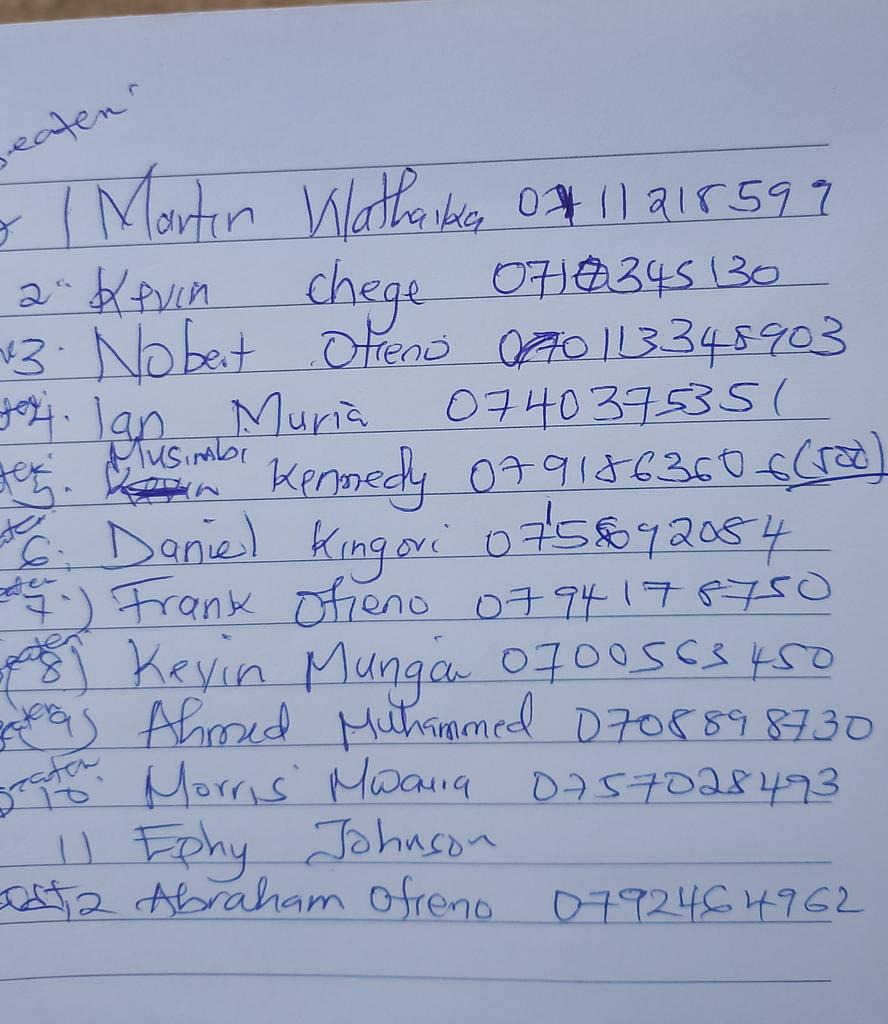 eaten
1 Martin Wathaika 0711218599
2. Kevin Chege 0710345130
3. Nobert Otieno 0113348903
4. Ian Muria 0740375351
5. Musimbi Kennedy 0791863606
6. Daniel Kingori
7.) Frank Otieno 0794178750
(8) Kevin Munga 0700563450
(9) Ahmed Muhammed 0708898730
10 Morris Mwaria 0757028493
11 Ephy Johnson
12 Abraham Otieno 0792464962